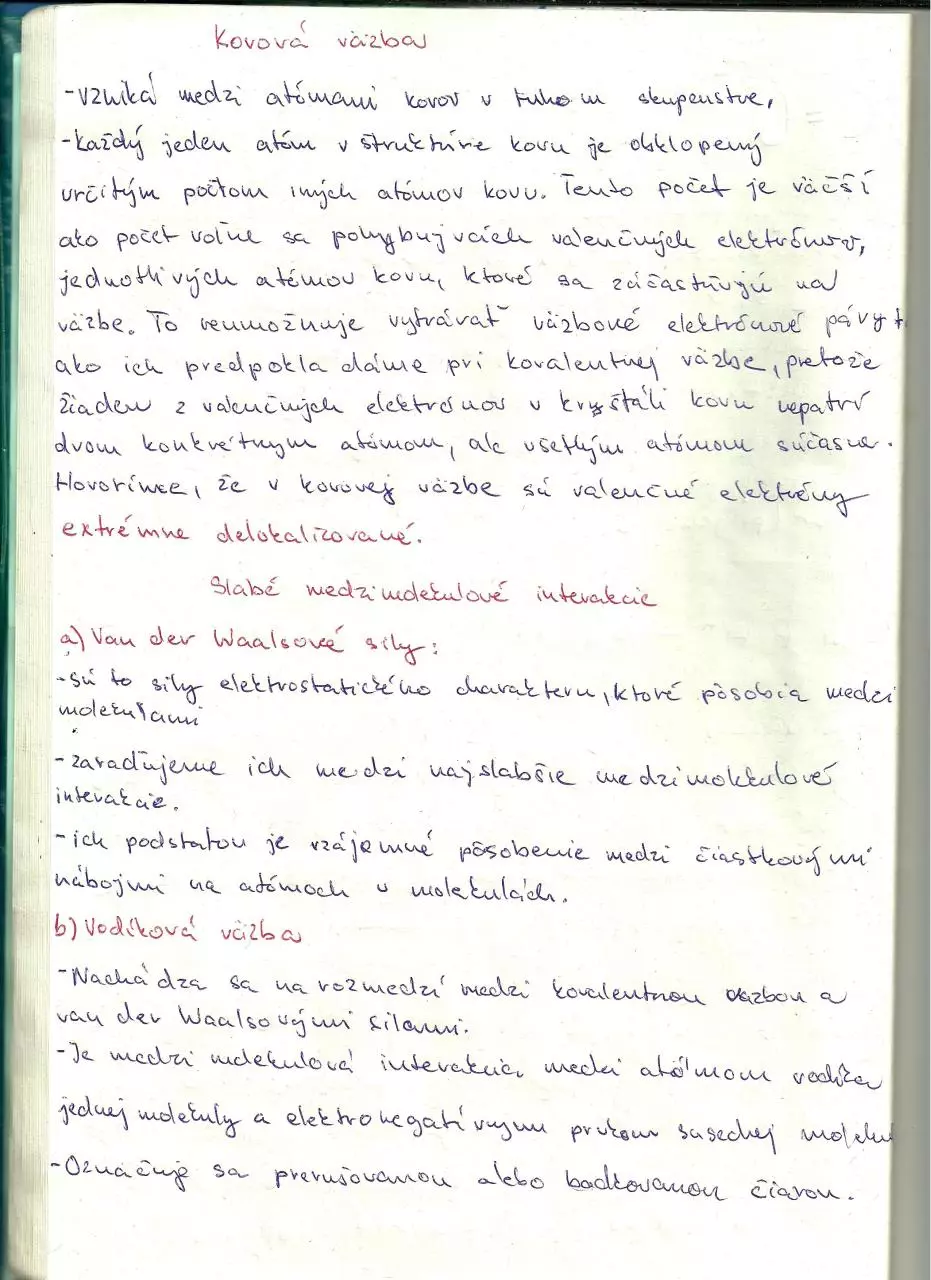 Kovová väzba
-Vzniká medzi atómami kovov v tuhom skupenstve,
-každý jeden atóm v štruktúre kovu je obklopený
určitým počtom iných atómov kovu. Tento počet je väčší
ako počet voľne sa pohybujúcich valenčných elektrónov,
jednotlivých atómov kovu, ktoré sa zúčastňujú na
väzbe. To neumožnuje vytvárať väzbové elektrónové páry t.
ako ich predpokladáme pri kovalentnej väzbe, pretože
žiaden z valenčných elektrónov v kryštáli kovu nepatrí
dvom konkrétnym atómom, ale všetkým atómom súčasne.
Hovoríme, že v kovovej väzbe sú valenčné elektróny
extrémne delokalizované.
Slabé medzimolekulové interakcie
a) Van der Waalsové sily:
-sú to sily elektrostatického charakteru, ktoré pôsobia medzi
molekulami
-zaraďujeme ich medzi najslabšie medzimolekulové
interakcie.
-ich podstatou je vzájomné pôsobenie medzi čiastkovými
nábojmi na atómoch v molekulách.
b) Vodíková väzba
-Nachádza sa na rozmedzí medzi kovalentnou väzbou a
van der Waalsovými silami.
-Je medzimolekulová interakcia medzi atómom vodíka
jednej molekuly a elektronegatívnym prvkom susednej molekul
-Označuje sa prerušovanou alebo bodkovanou čiarou.